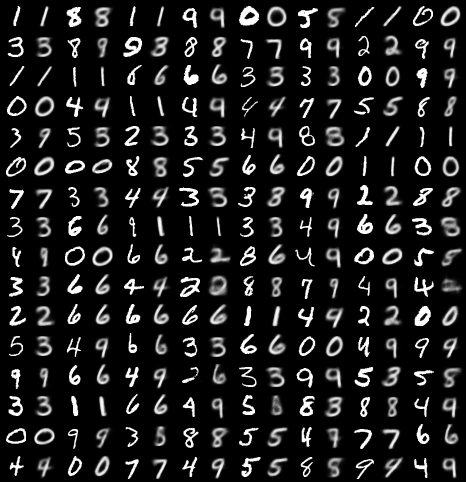 1 1 8 8 1 1 9 9 0 0 5 8 1 1 0 0
3 3 8 9 9 3 8 8 7 7 9 9 2 2 9 9
1 1 1 1 6 6 6 6 3 3 3 3 0 0 9 9
0 0 4 9 1 1 4 9 4 4 7 7 5 5 8 8
3 9 5 3 2 3 3 3 4 9 8 8 1 1 1 1
0 0 0 0 8 8 5 5 6 6 0 0 1 1 0 0
7 7 3 3 4 4 3 3 3 8 9 9 2 2 8 8
3 3 6 6 9 1 1 1 3 3 4 9 6 6 3 8
4 9 0 0 6 6 2 2 8 6 4 9 0 0 5 8
3 3 6 6 4 9 2 2 8 8 7 9 4 9 4 2
2 2 6 6 6 6 6 6 1 1 4 9 2 2 0 0
5 3 4 9 6 6 3 3 6 6 0 0 4 9 9 9
9 9 6 6 4 9 2 6 3 3 9 9 5 3 5 8
3 3 1 1 6 6 4 9 5 8 8 3 8 8 4 9
0 0 9 9 3 3 8 8 5 5 4 9 7 7 6 6
4 4 0 0 7 7 4 9 5 5 8 8 9 9 4 9